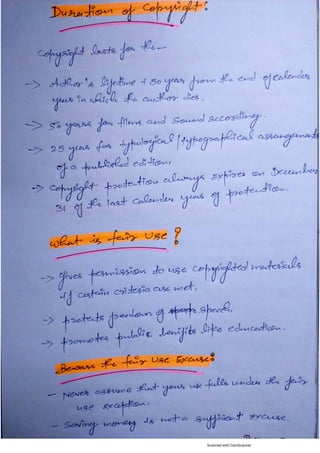 Duration of Copyright:
Copyright lasts for the -
-> Author's lifetime + 50 years from the end of calender
year in which the author dies.
-> 50 years for films and sound recording.
-> 25 years for typological / typographical assangements
of a published edition,
-> copyright protection always expires on December
31 of the last calender year of protection.
What is fair Use ?
-> gives permission to use copyrighted materials
if certain criteria are met.
-> protects freedom of speech.
-> promotes public benifits like education.
Beware the fair Use Excuse:
- Never assume that your use falls under the fair
use exception.
- Saving money is not a sufficient excuse.
Scanned with CamScanner